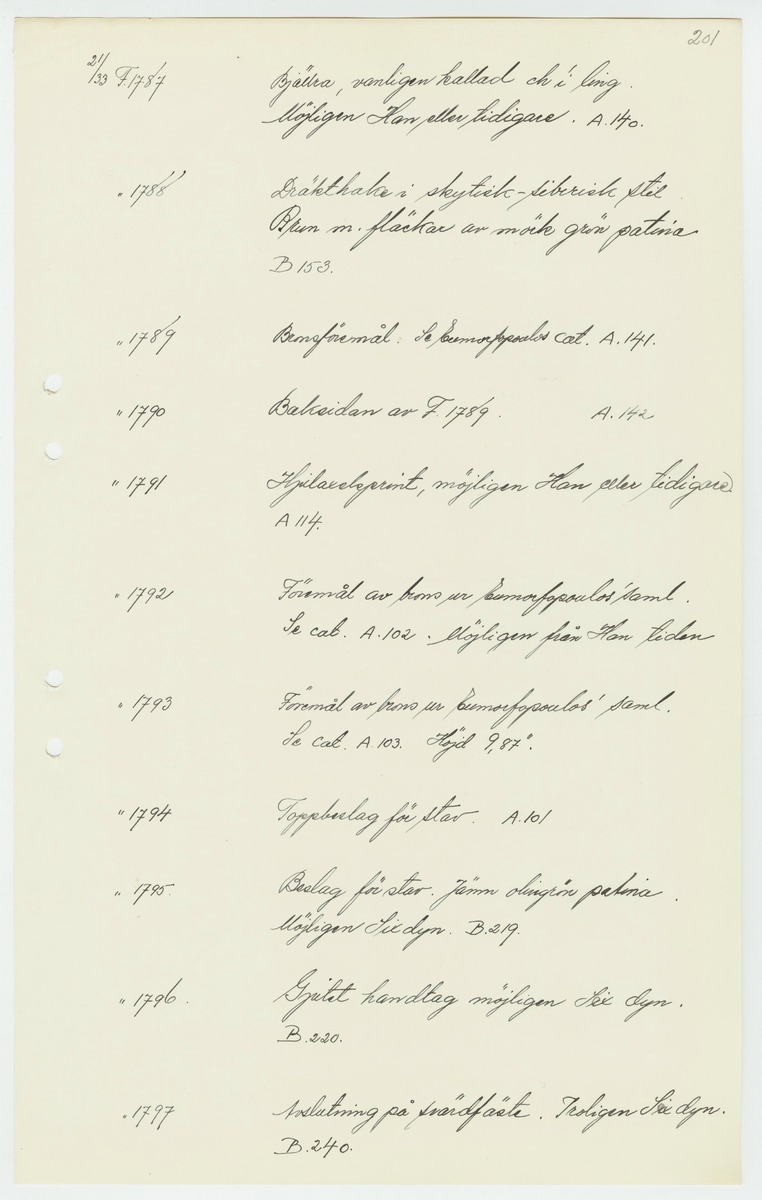 201
21/33 F.1787 Bjällra, vanligen kallad ch'i ling.
Möjligen Han eller tidigare. A.140.
" 1788 Dräkthake i skytisk-sibirisk stil
Brun m. fläckar av mörk grön patina
B 153.
" 1789 Bronsföremål. Se Eumorfopoulos cat. A.141.
" 1790 Baksidan av F. 1789. A.142
" 1791 Hjulaxelsprint, möjligen Han eller tidigare.
A 114.
" 1792 Föremål av brons ur Eumorfopoulos' saml.
Se cat. A.102. Möjligen från Han tiden
" 1793 Föremål av brons ur Eumorfopoulos' saml.
Se cat. A.103. Höjd 9,87".
" 1794 Toppbeslag för stav. A.101
" 1795. Beslag för stav. Jämn olivgrön patina.
Möjligen Six dyn. B.219.
" 1796. Gjutet handtag möjligen Six dyn.
B.220.
" 1797 Avslutning på svärdfäste. Troligen Six dyn.
B.240.